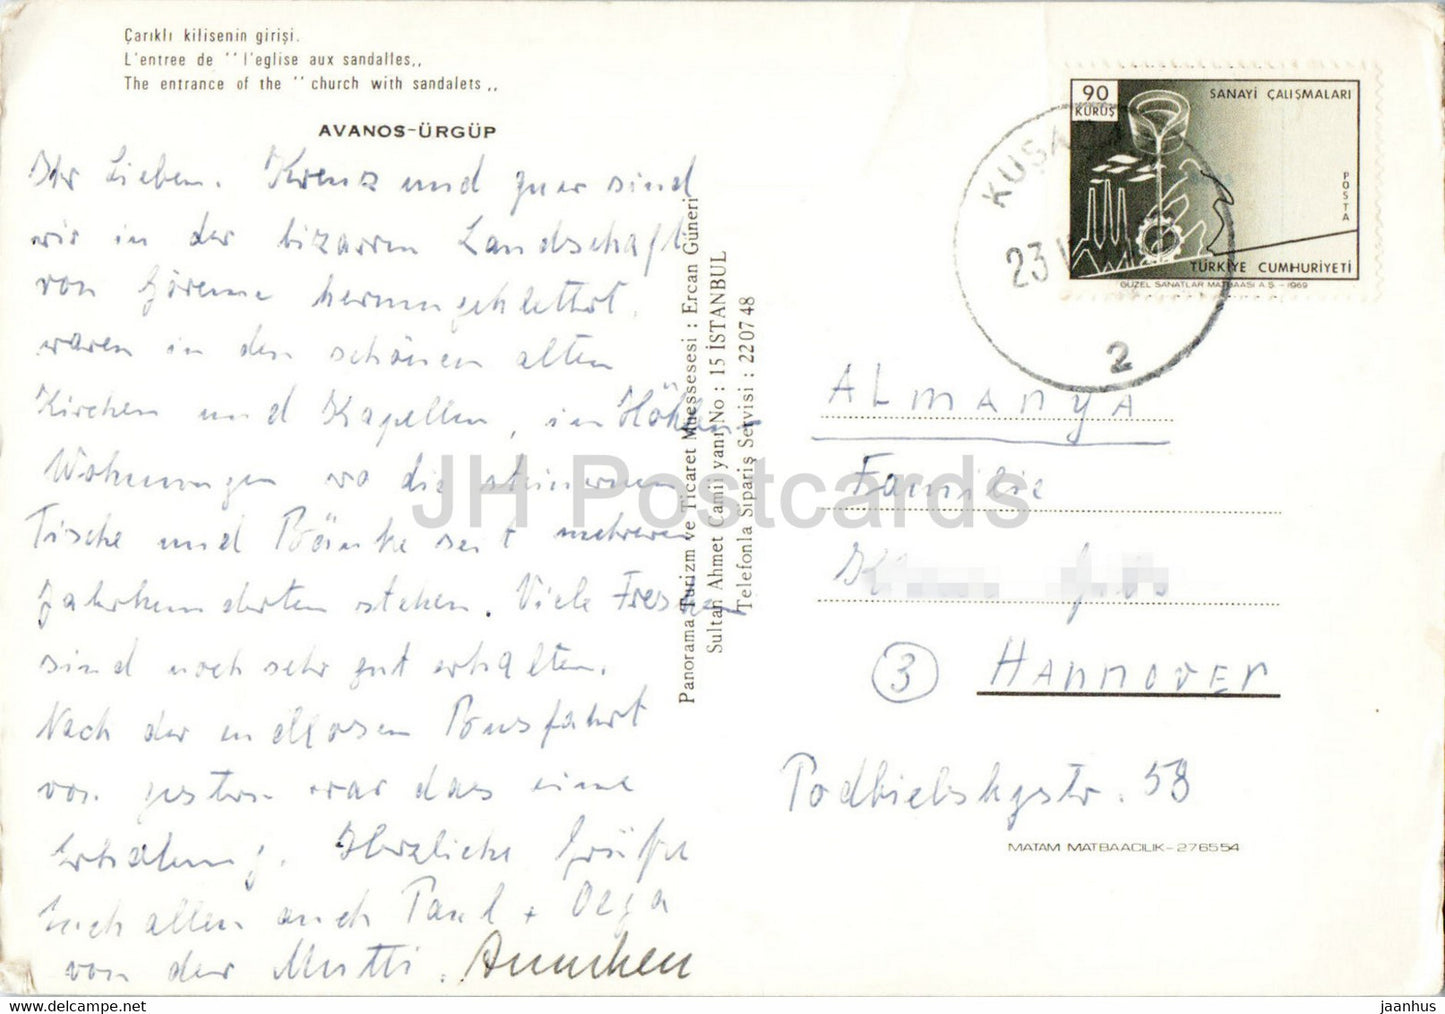 Çarıklı kilisenin girişi.
L'entree de '' l'eglise aux sandalles,,
The entrance of the '' church with sandalets ,,
AVANOS-ÜRGÜP
Ihr Lieben. Kreuz und quer sind
wir in der bizarren Landschaft
von Göreme herumgeklettert,
waren in den schönen alten
Kirchen und Kapellen, in Höhlen-
Wohnungen wo die steinernen
Tische und Bänke seit mehreren
Jahrhunderten stehen. Viele Fresken
sind noch sehr gut erhalten.
Nach der endlosen Busfahrt
von gestern war das eine
Erholung. Herzliche Grüße
Euch allen auch Paul + Olga
von der Mutti. Annchen
Panorama Turizm ve Ticaret Muessesesi : Ercan Güneri
Sultan Ahmet Camii yanı No : 15 İSTANBUL
Telefonla Sipariş Servisi : 22 07 48
90
KURUŞ
SANAYİ ÇALIŞMALARI
POSTA
TÜRKİYE CUMHURİYETİ
GÜZEL SANATLAR MATBAASI A.Ş. - 1969
KUŞA
23
2
ALMANYA
Familie
3 HANNOVER
Podbielskystr. 58
MATAM MATBAACILIK-276554
JH Postcards
hip
post.com
jaanhus